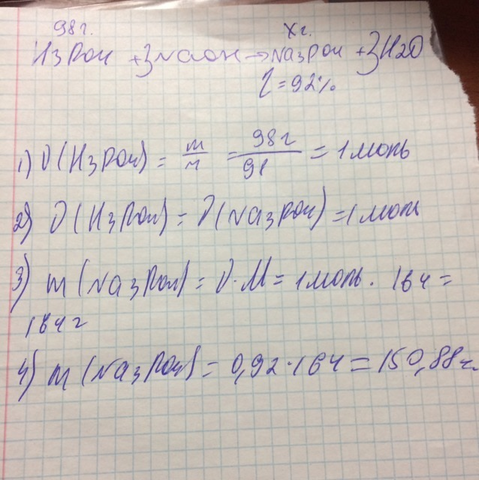 98 г. Xг.
H3PO4 + 3NaOH → Na3PO4 + 3H2O
η = 92%
1) ν(H3PO4) = m/M = 98г/98 = 1моль
2) ν(H3PO4) = ν(Na3PO4) = 1моль
3) m(Na3PO4) = ν·M = 1моль · 164 =
164г
4) m(Na3PO4) = 0,92·164 = 150,88г.